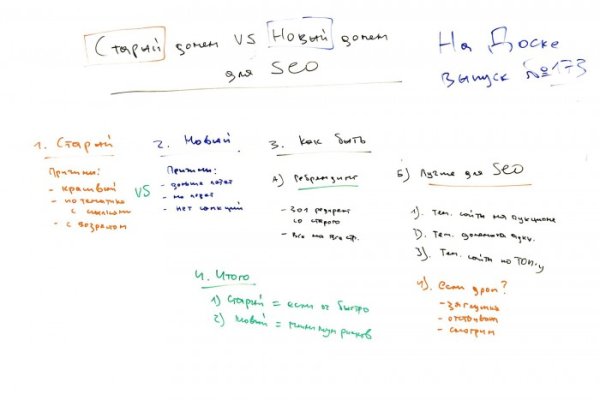 Старый домен VS Новый домен
для SEO
На Доске
выпуск №173
1. Старый
Причины:
- красивый
- по тематике
с ссылками
- с возрастом
VS
2. Новый
Причины:
- дольше
- не
- нет санкций
3. Как быть
А) Ребрендинг
- 301 редирект
со старого
- Все на все стр.
Б) Лучше для SEO
1). Тем. сайты на аукционе
2). Тем. домена
3). Тем. сайты по ТОП-у
4). Если дроп?
- заглушка
- отстаиваем
- смотрим
4. Итого
1) Старый = если оч быстро
2) Новый = минимум рисков